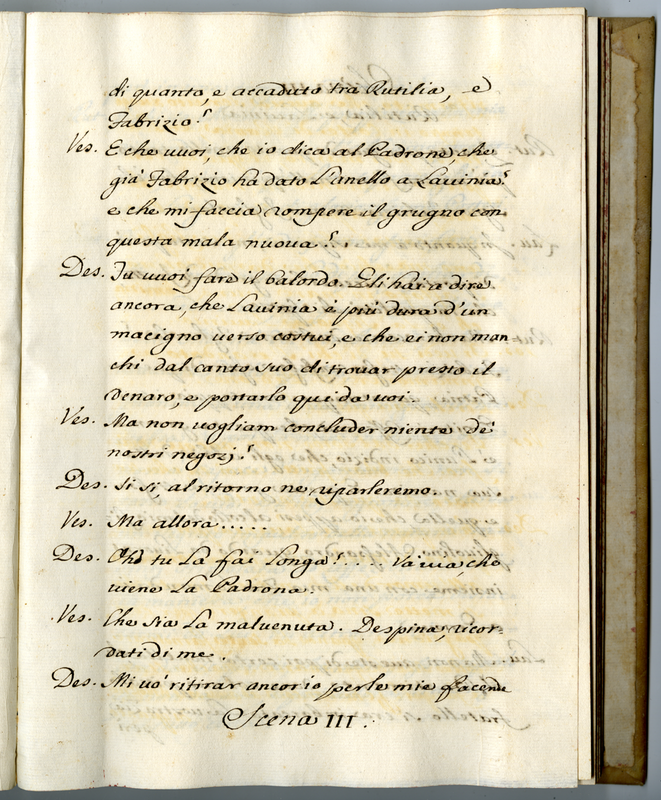 di quanto, e accaduto tra Rutilia, e
Fabrizio?
Ves. E che vuoi, che io dica al Padrone, che
già Fabrizio ha dato L'anello a Lavinia?
e che mi faccia rompere il grugno con
questa mala nuova?
Des. Tu vuoi fare il balordo. Gli hai a dire
ancora, che Lavinia è più dura d'un
macigno verso costui, e che ei non man
chi dal canto suo di trovar presto il
denaro, e portarlo qui da voi.
Ves. Ma non vogliam concluder niente de'
nostri negozj?
Des. Si si, al ritorno ne riparleremo.
Ves. Ma allora.....
Des. Oh! tu La fai Longa!.... Va via, che
viene La Padrona.
Ves. Che sia La malvenuta. Despina, ricor
dati di me.
Des. Mi vo' ritirar ancor io per le mie facende
Scena III.